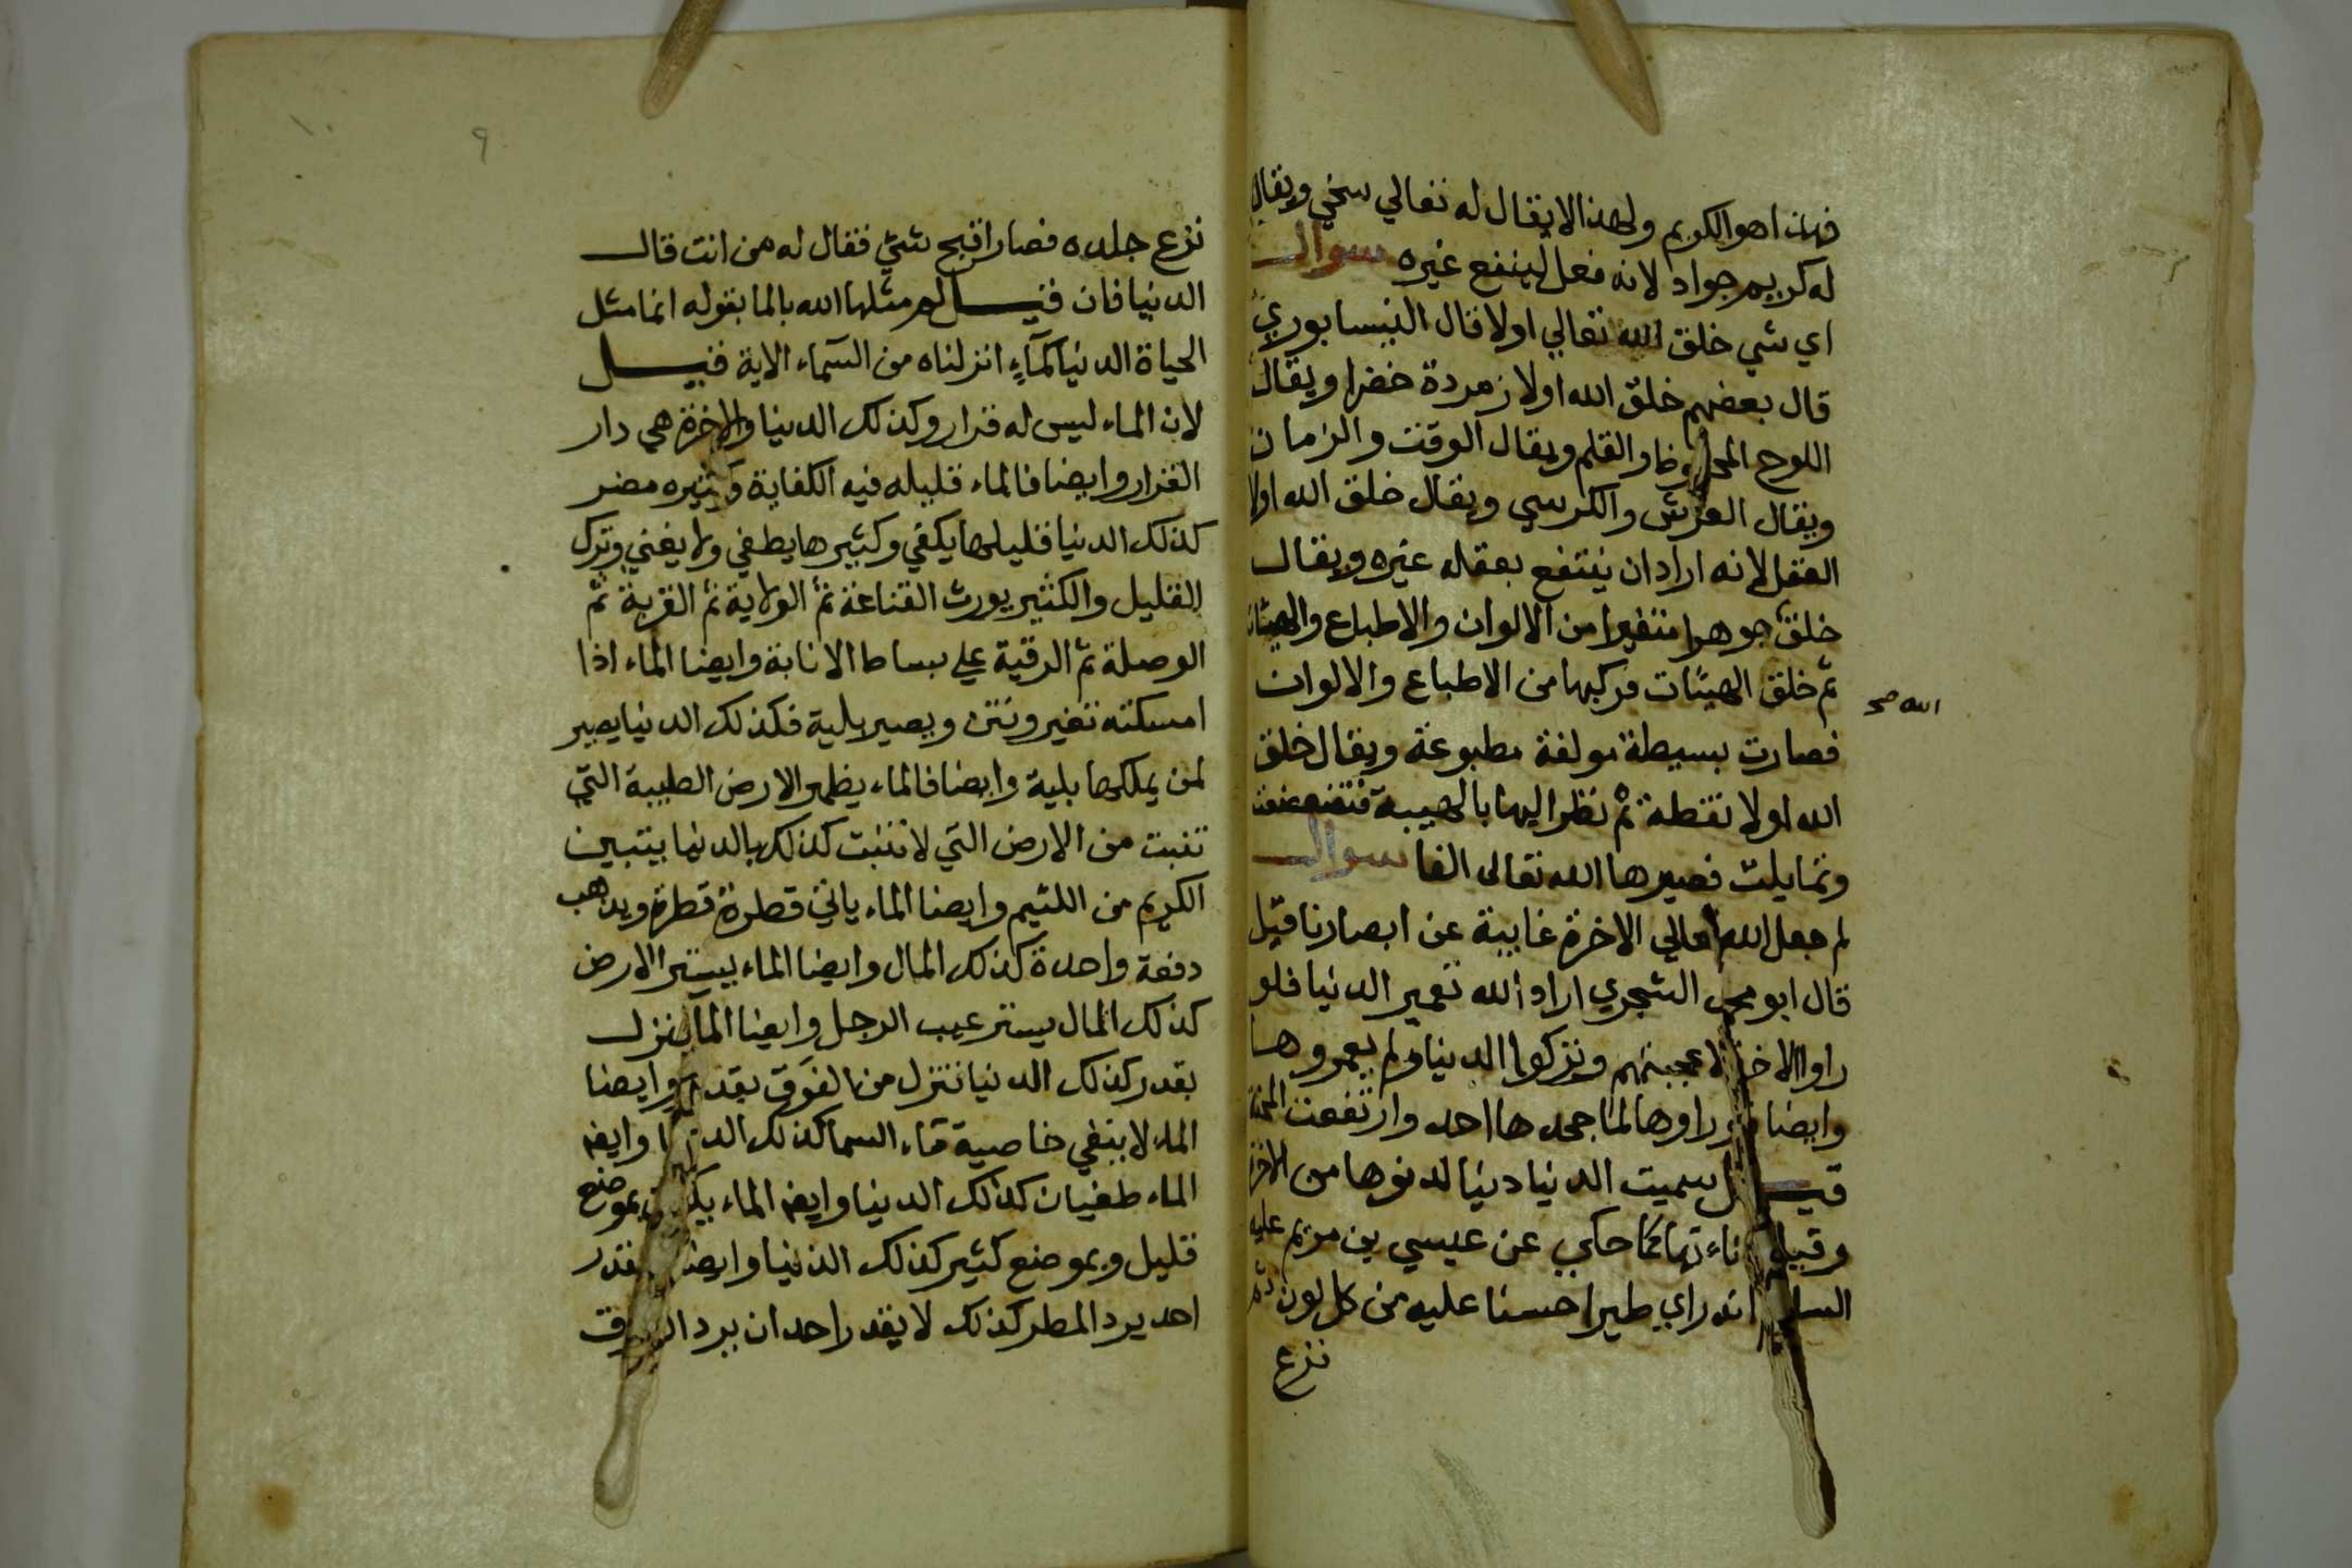 فهذا هو الكريم ولهذا لا يقال له تعالي سخي ويقال
له كريم جواد لانه فعل لينفع غيره سوال
اي شي خلق الله تعالي اولا قال النيسابوري
قال بعضهم خلق الله اولا زمردة خضرا ويقال
اللوح المحفوظ والقلم ويقال الوقت والزمان
ويقال العرش والكرسي ويقال خلق الله اولا
العقل لانه اراد ان ينتفع بعقله غيره ويقال
خلق جوهرا متغيرا من الالوان والاطباع والهيئات
ثم خلق الهيئات فركبها من الاطباع والالوان
الله صح
فصارت بسيطة مولفة مطبوعة ويقال خلق
الله اولا نقطة ثم نظر اليها بالهيبة فتضعضعت
وتمايلت فصيرها الله تعالى الفا سوال
لم جعل الله تعالي الاخرة غايبة عن ابصارنا قيل
قال ابو محمد الشجري اراد الله تعمير الدنيا فلو
راوا الاخرة لاعجبتهم وتركوا الدنيا ولم يعمروها
وايضا راوها لما جحدها احد وارتفعت المحنة
قيل سميت الدنيا دنيا لدنوها من الاخرة
وقيل كما حكي عن عيسي بن مريم عليه
السلام انه راي طيرا حسنا عليه من كل لون ثم
نزع
٩
نزع جلده فصار اقبح شئ فقال له من انت قال
الدنيا فان قيل لم مثلها الله بالما بقوله انما مثل
الحياة الدنيا كمآءٍ انزلناه من السماء الاية قيل
لان الماء ليس له قرار وكذلك الدنيا والاخرة هي دار
القرار وايضا فالماء قليله فيه الكفاية وكثيره مضر
كذلك الدنيا قليلها يكفي وكثيرها يطغي ولا يغني وترك
القليل والكثير يورث القناعة ثم الولاية ثم القربة ثم
الوصلة ثم الرقية علي بساط الانابة وايضا الماء اذا
امسكته تغير ونتن ويصير بلية فكذلك الدنيا يصير
لمن يملكها بلية وايضا فالماء يظهر الارض الطيبة التي
تنبت من الارض التي لا تنبت كذلك بالدنيا يتبين
الكريم من اللئيم وايضا الماء ياتي قطرة قطرة ويذهب
دفعة واحدة كذلك المال وايضا الماء يستر الارض
كذلك المال يستر عيب الرجل وايضا الما ينزل
بقدر كذلك الدنيا تنزل من الفوق بقدر وايضا
الماء لا ينفي خاصية ماء السما كذلك الدنيا وايضا
الماء طغيان كذلك الدنيا وايضا الماء يكون بموضع
قليل وبموضع كثير كذلك الدنيا وايضا يقدر
احد يرد المطر كذلك لا يقدر احد ان يرد الرزق